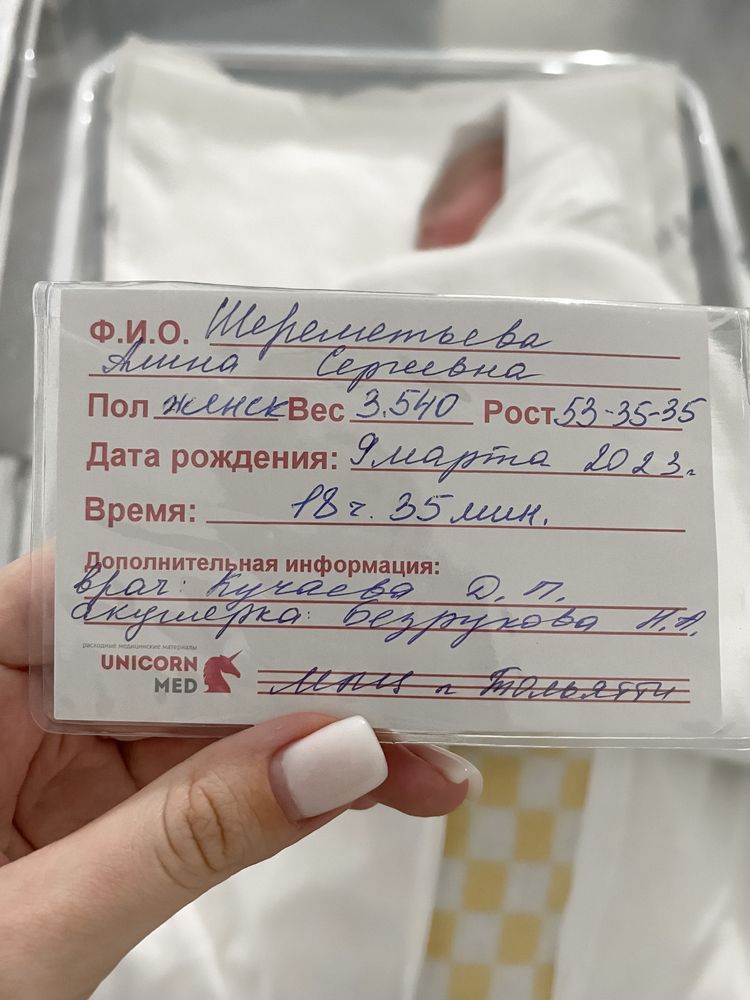 Ф.И.О. Шереметьева
Алина Сергеевна
Пол женск Вес 3.540 Рост 53-35-35
Дата рождения: 9 марта 2023г.
Время: 18 ч. 35 мин.
Дополнительная информация:
врач: Кучаева Д. П.
акушерка: Безрукова Н.А.
расходные медицинские материалы
UNICORN
MED
г. Тольятти